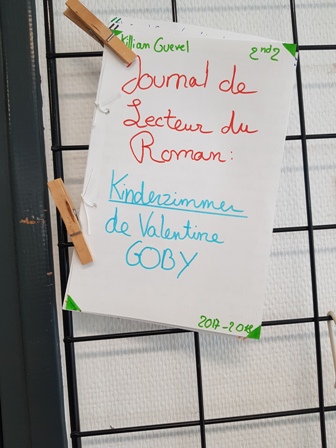 Killian Guevel
2nd2
Journal de
Lecteur du
Roman:
Kinderzimmer
de Valentine
GOBY